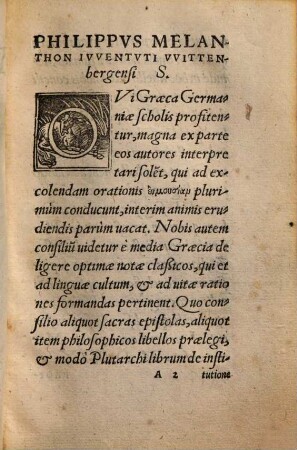 PHILIPPVS MELAN-
THON IVVENTVTI VVITTEN-
bergensi S.
QVi Græca Germa-
niæ scholis profiten-
tur, magna ex parte
eos autores interpre
tari solẽt, qui ad ex-
colendam orationis pluri-
mùm conducunt, interim animis eru-
diendis parùm uacat. Nobis autem
consiliũ uidetur è media Græcia de
ligere optimæ notæ claßicos, qui et
ad linguæ cultum, & ad uitæ ratio
nes formandas pertinent. Quo con-
silio aliquot sacras epistolas, aliquot
item philosophicos libellos prælegi,
& modò Plutarchi librum de insti-
A 2 tutione